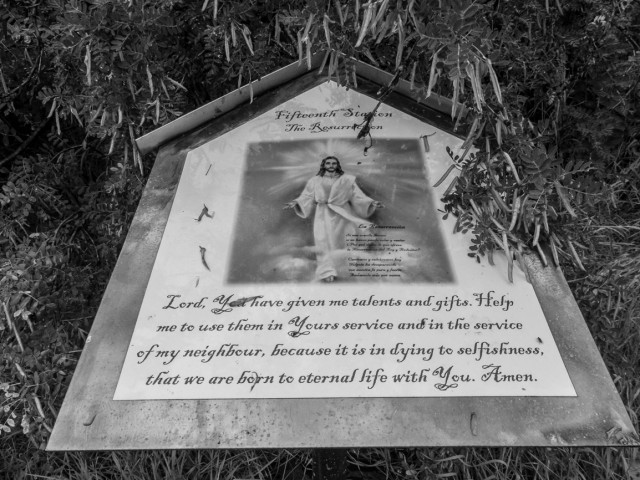 Fifteenth Station
The Resurrection
La
Lord, You have given me talents and gifts. Help
me to use them in Yours service and in the service
of my neighbour, because it is in dying to selfishness,
that we are born to eternal life with You. Amen.